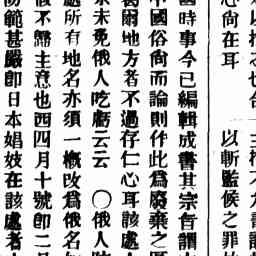 心尚在耳　以斬監候之罪
時事今已編輯成書其宗旨謂
中國俗尚而論則作此為廢棄之區
爾地方者不過存仁心耳該處人
未免俄人吃虧云云　○俄人
處所有地名亦須一概改為俄名
不歸主意也西四月十號即二
防範甚嚴即日本娼妓在該處者